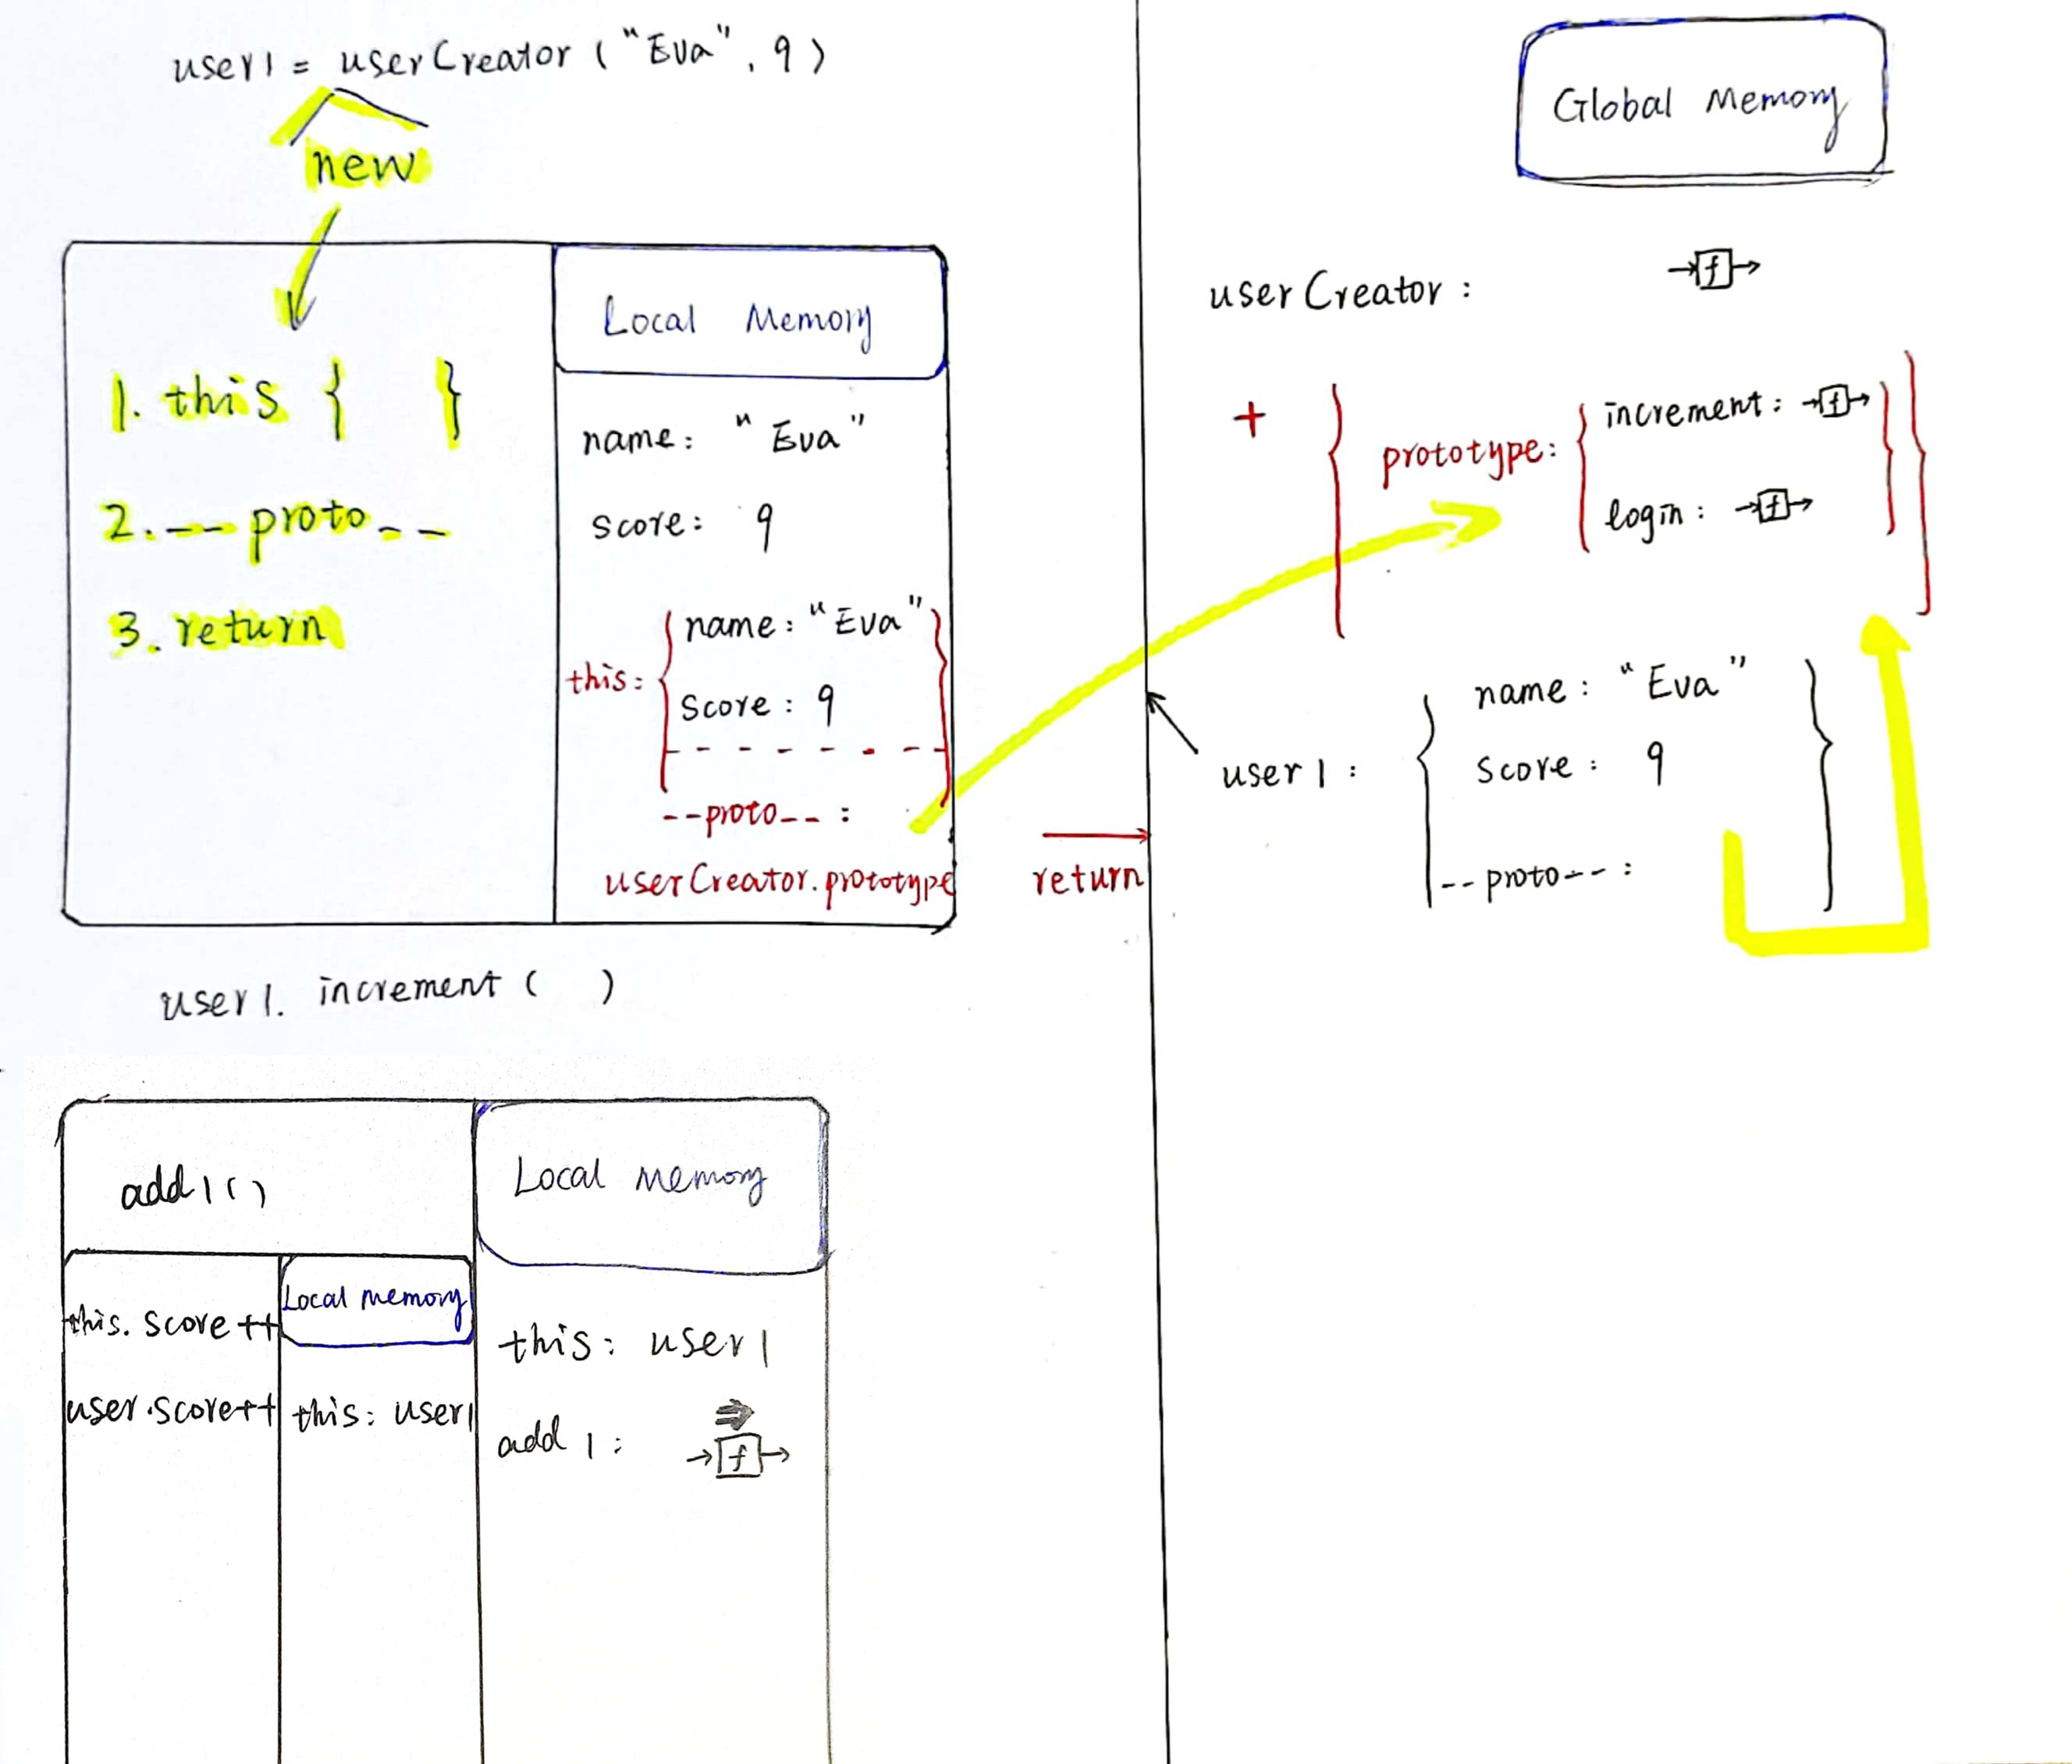 user1 = userCreator ("Eva", 9)
new
1. this { }
2. __proto__
3. return
Local Memory
name: "Eva"
score: 9
this: { name: "Eva"
score: 9 }
--proto-- :
userCreator.prototype
return
Global Memory
userCreator : →[f]→
+ { prototype: { increment: →[f]→
login: →[f]→ } }
user1 : { name : "Eva"
score : 9
--proto-- : }
user1. increment ( )
add1()
Local Memory
this. score ++
user.score++
Local memory
this: user1
this: user1
add1: ⇒
→[f]→